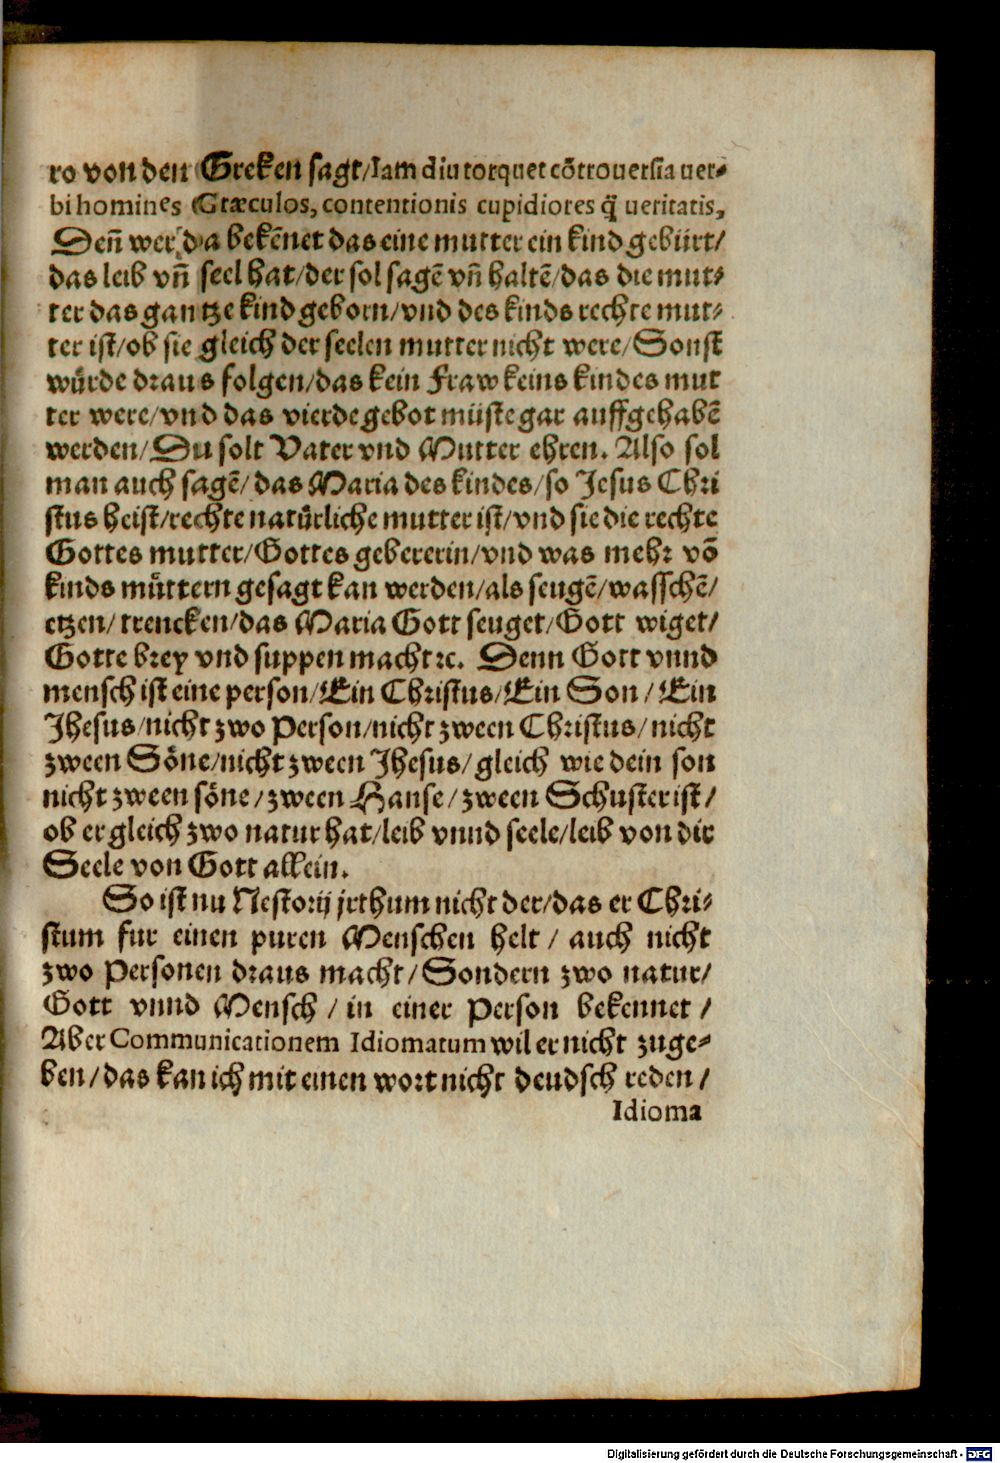 ro von den Greken sagt/Iam diu torquet cōtrouersia uer-
bi homines Græculos, contentionis cupidiores q̃ ueritatis,
Deñ wer da bekēnet das eine mutter ein kind gebürt/
das leib vñ seel hat/der sol sagē vñ haltē/das die mut-
ter das gantze kind geborn/vnd des kinds rechte mut-
ter ist/ob sie gleich der seelen mutter nicht were/Sonst
würde draus folgen/das kein Fraw keins kindes mut
ter were/vnd das vierde gebot müste gar auffgehabē
werden/Du solt Vater vnd Mutter ehren. Also sol
man auch sagē/das Maria des kindes/so Jesus Chri
stus heist/rechte natürliche mutter ist/vnd sie die rechte
Gottes mutter/Gottes gebererin/vnd was mehr vō
kinds müttern gesagt kan werden/als seugē/wasschē/
etzen/trencken/das Maria Gott seuget/Gott wiget/
Gotte brey vnd suppen macht ꝛc. Denn Gott vnnd
mensch ist eine person/Ein Christus/Ein Son/Ein
Jhesus/nicht zwo Person/nicht zween Christus/nicht
zween Söne/nicht zween Jhesus/gleich wie dein son
nicht zween söne/zween Hanse/zween Schuster ist/
ob er gleich zwo natur hat/leib vnnd seele/leib von dir
Seele von Gott allein.
So ist nu Nestorij jrthum nicht der/das er Chri-
stum fur einen puren Menschen helt/auch nicht
zwo Personen draus macht/Sondern zwo natur/
Gott vnnd Mensch/in einer Person bekennet/
Aber Communicationem Idiomatum wil er nicht zuge-
ben/das kan ich mit einen wort nicht deudsch reden/
Idioma
Digitalisierung gefördert durch die Deutsche Forschungsgemeinschaft - DFG